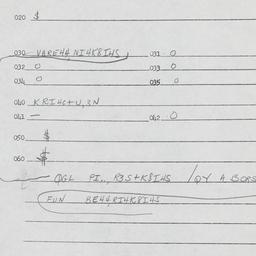 020 $
030 VAREH4, NI4K8IHS 031 0
032 0 033 0
034 0 035 0
040 KRIHC+U,3N
041 — 042 0
050 $
060 $
— QGL PI.., R3S+K8IHS / QY A
FUN BEH4RI4K8IHS